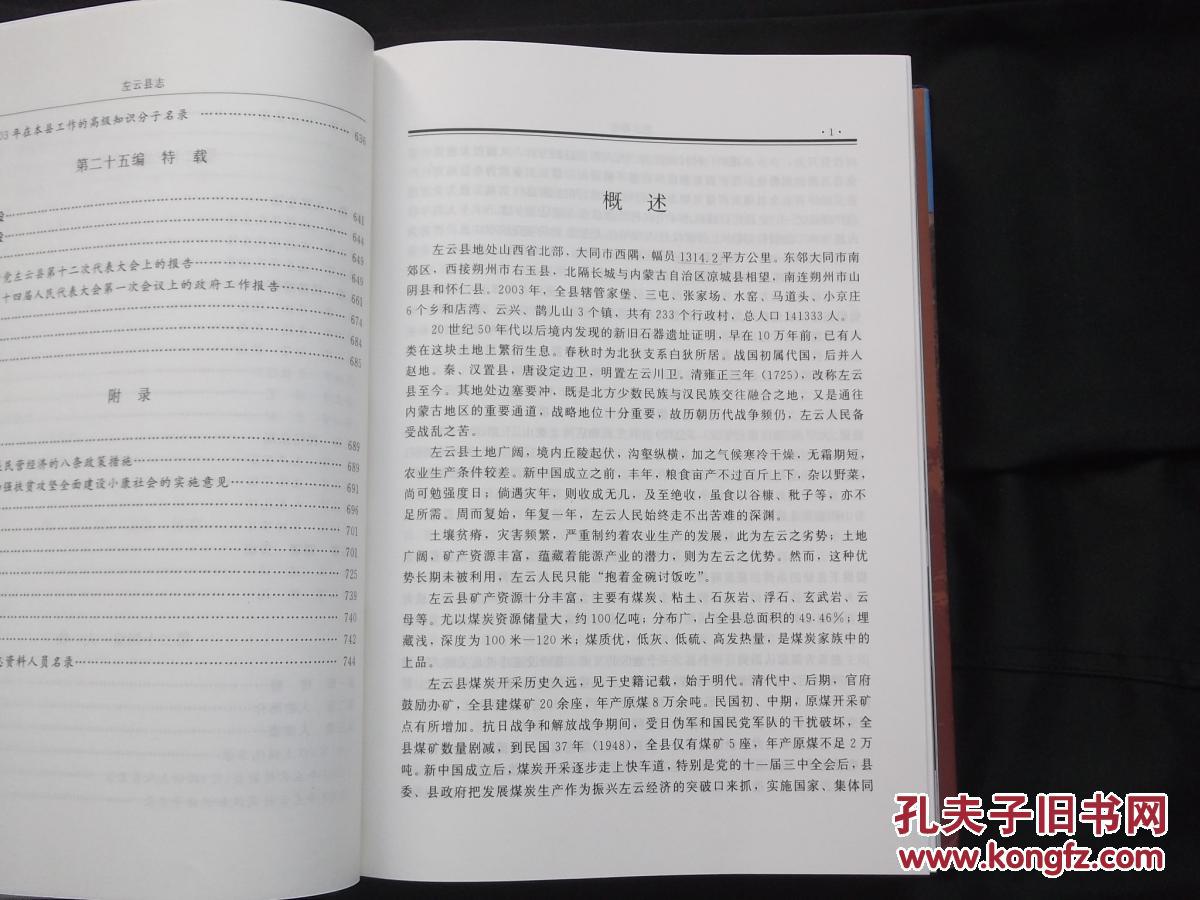 左云县志
03年在本县工作的高级知识分子名录 636
第二十五编 特 载
641
644
649
党左云县第十二次代表大会上的报告 649
十四届人民代表大会第一次会议上的政府工作报告 661
674
684
685
附 录
689
民营经济的八条政策措施 689
强扶贫攻坚全面建设小康社会的实施意见 691
696
701
701
725
739
740
742
资料人员名录 744
·1·
概 述
左云县地处山西省北部，大同市西隅，幅员1314.2平方公里。东邻大同市南
郊区，西接朔州市右玉县，北隔长城与内蒙古自治区凉城县相望，南连朔州市山
阴县和怀仁县。2003年，全县辖管家堡、三屯、张家场、水窑、马道头、小京庄
6个乡和店湾、云兴、鹊儿山3个镇，共有233个行政村，总人口141333人。
20世纪50年代以后境内发现的新旧石器遗址证明，早在10万年前，已有人
类在这块土地上繁衍生息。春秋时为北狄支系白狄所居。战国初属代国，后并入
赵地。秦、汉置县，唐设定边卫，明置左云川卫。清雍正三年（1725），改称左云
县至今。其地处边塞要冲，既是北方少数民族与汉民族交往融合之地，又是通往
内蒙古地区的重要通道，战略地位十分重要，故历朝历代战争频仍，左云人民备
受战乱之苦。
左云县土地广阔，境内丘陵起伏，沟壑纵横，加之气候寒冷干燥，无霜期短，
农业生产条件较差。新中国成立之前，丰年，粮食亩产不过百斤上下，杂以野菜，
尚可勉强度日；倘遇灾年，则收成无几，及至绝收，虽食以谷糠、秕子等，亦不
足所需。周而复始，年复一年，左云人民始终走不出苦难的深渊。
土壤贫瘠，灾害频繁，严重制约着农业生产的发展，此为左云之劣势；土地
广阔，矿产资源丰富，蕴藏着能源产业的潜力，则为左云之优势。然而，这种优
势长期未被利用，左云人民只能“抱着金碗讨饭吃”。
左云县矿产资源十分丰富，主要有煤炭、粘土、石灰岩、浮石、玄武岩、云
母等。尤以煤炭资源储量大，约100亿吨；分布广，占全县总面积的49.46%；埋
藏浅，深度为100米—120米；煤质优，低灰、低硫、高发热量，是煤炭家族中的
上品。
左云县煤炭开采历史久远，见于史籍记载，始于明代。清代中、后期，官府
鼓励办矿，全县建煤矿20余座，年产原煤8万余吨。民国初、中期，原煤开采矿
点有所增加。抗日战争和解放战争期间，受日伪军和国民党军队的干扰破坏，全
县煤矿数量剧减，到民国37年（1948），全县仅有煤矿5座，年产原煤不足2万
吨。新中国成立后，煤炭开采逐步走上快车道，特别是党的十一届三中全会后，县
委、县政府把发展煤炭生产作为振兴左云经济的突破口来抓，实施国家、集体同
孔夫子旧书网
www.kongfz.com